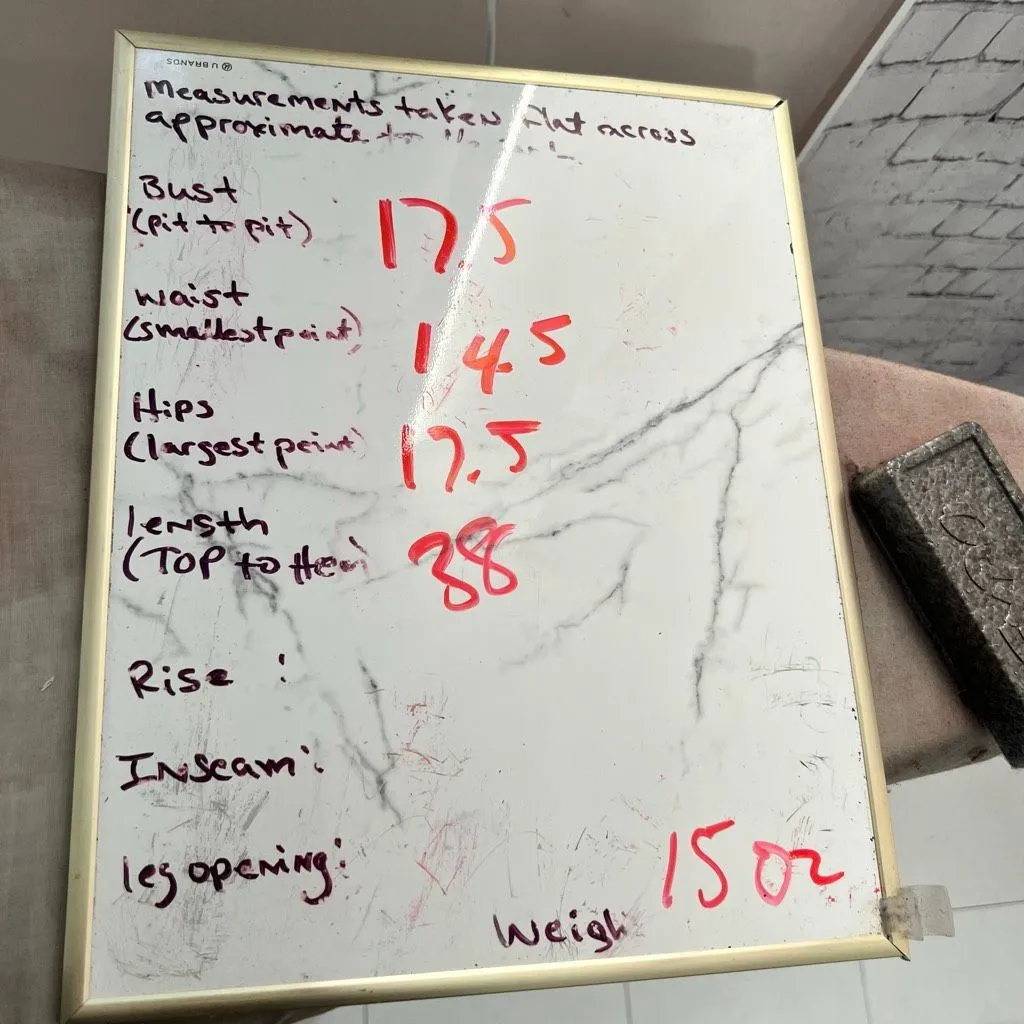 U BRANDS
Measurements taken flat across
approximate
Bust
(pit to pit) 17.5
waist
(smallest point) 14.5
Hips
(largest point) 17.5
length
(TOP to Hem) 38
Rise :
Inseam:
leg opening:
15 oz
Weigh